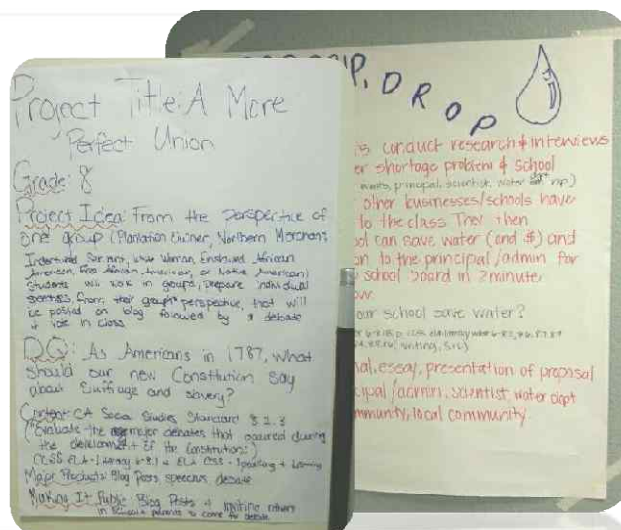 Project Title: A More
Perfect Union
Grade: 8
Project Idea: From the perspective of
one group (Plantation Owner, Northern Merchant
Indentured Servant, White Woman, Enslaved African
American, Free African American, or Native American)
students will work in groups, prepare individual
speeches, from their group's perspective, that will
be posted on blog followed by a debate
+ vote in class
DQ: As Americans in 1787, What
should our new Constitution say
about Suffrage and slavery?
Content: CA Social Studies Standard 8.2.3
("Evaluate the major debates that occured during
the development of the Constitution:")
Major Products: Blog Posts speeches debate
Making It Public: Blog Posts +
in school + parents to come for debate.
IP, DROP
conduct research & interviews
er shortage problem & school
principal, scientist, water
other businesses/schools have
to the class They then
ol can save water (and $) and
on to the principal/admin for
school board in 2 minute
our school save water?
writing,
al, essay, presentation of proposal
cipal/admin, scientist, water dept
mmunity, local community.